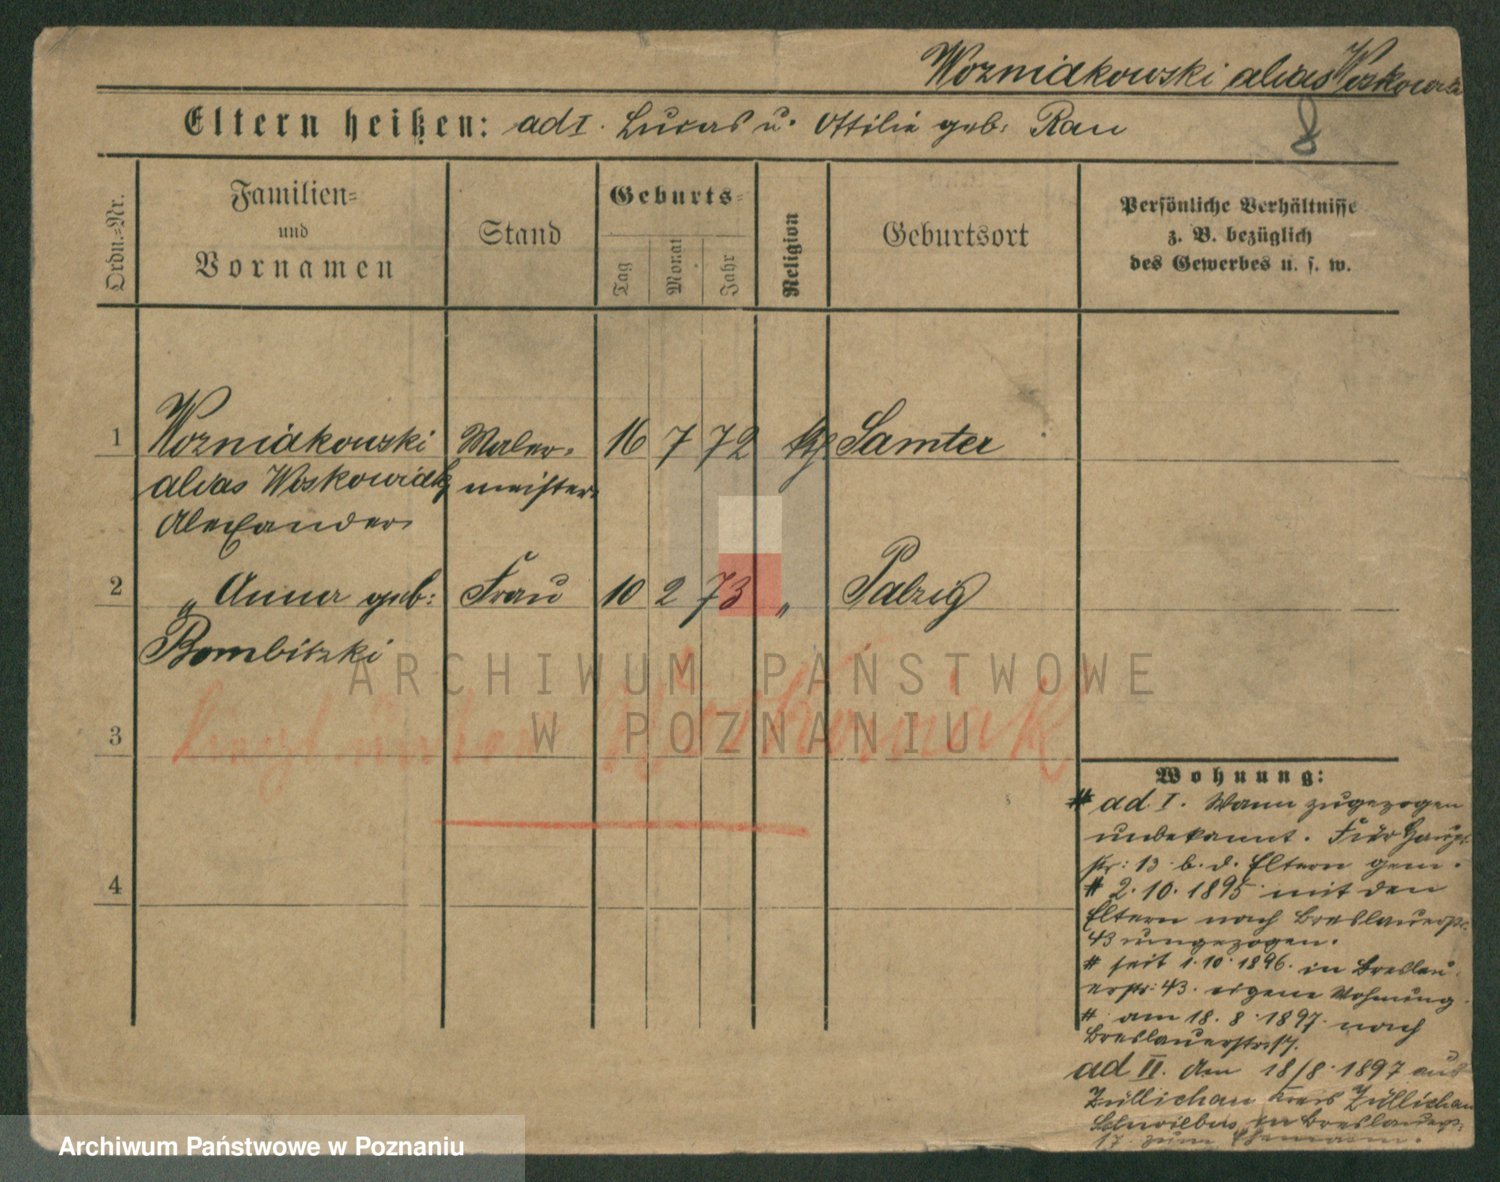 Wozniakowski alias Woskowiak
8
Eltern heißen: ad I. Lucas u. Ottilie geb. Rau
Ordn.=Nr.
Familien=
und
Vornamen
Stand
Geburts=
Tag
Monat
Jahr
Religion
Geburtsort
Persönliche Verhältnisse
z. B. bezüglich
des Gewerbes u. s. w.
1 Wozniakowski Maler= 16 7 72 kth Samter
alias Woskowiak meister
Alexander
2 „ Anna geb: Frau 10 2 73 „ Palzig
Bombitzki
3 Woskowiak
4
Wohnung:
# ad I. Wann zugezogen
unbekannt. Für Haupt
str: 13 b. d. Eltern gem.
# 2.10.1895 mit den
Eltern nach Breslauerstr.
43 umgezogen.
# seit 1.10.1896 in Breslau
erstr: 43. eigene Wohnung
# am 18.8.1897 nach
Breslauerstr: 17.
ad II. Am 18/8.1897 aus
Züllichau Kreis Züllichau
Schwiebus in Breslauerstr.
17 zum Ehemann.
ARCHIWUM PAŃSTWOWE
W POZNANIU
Archiwum Państwowe w Poznaniu